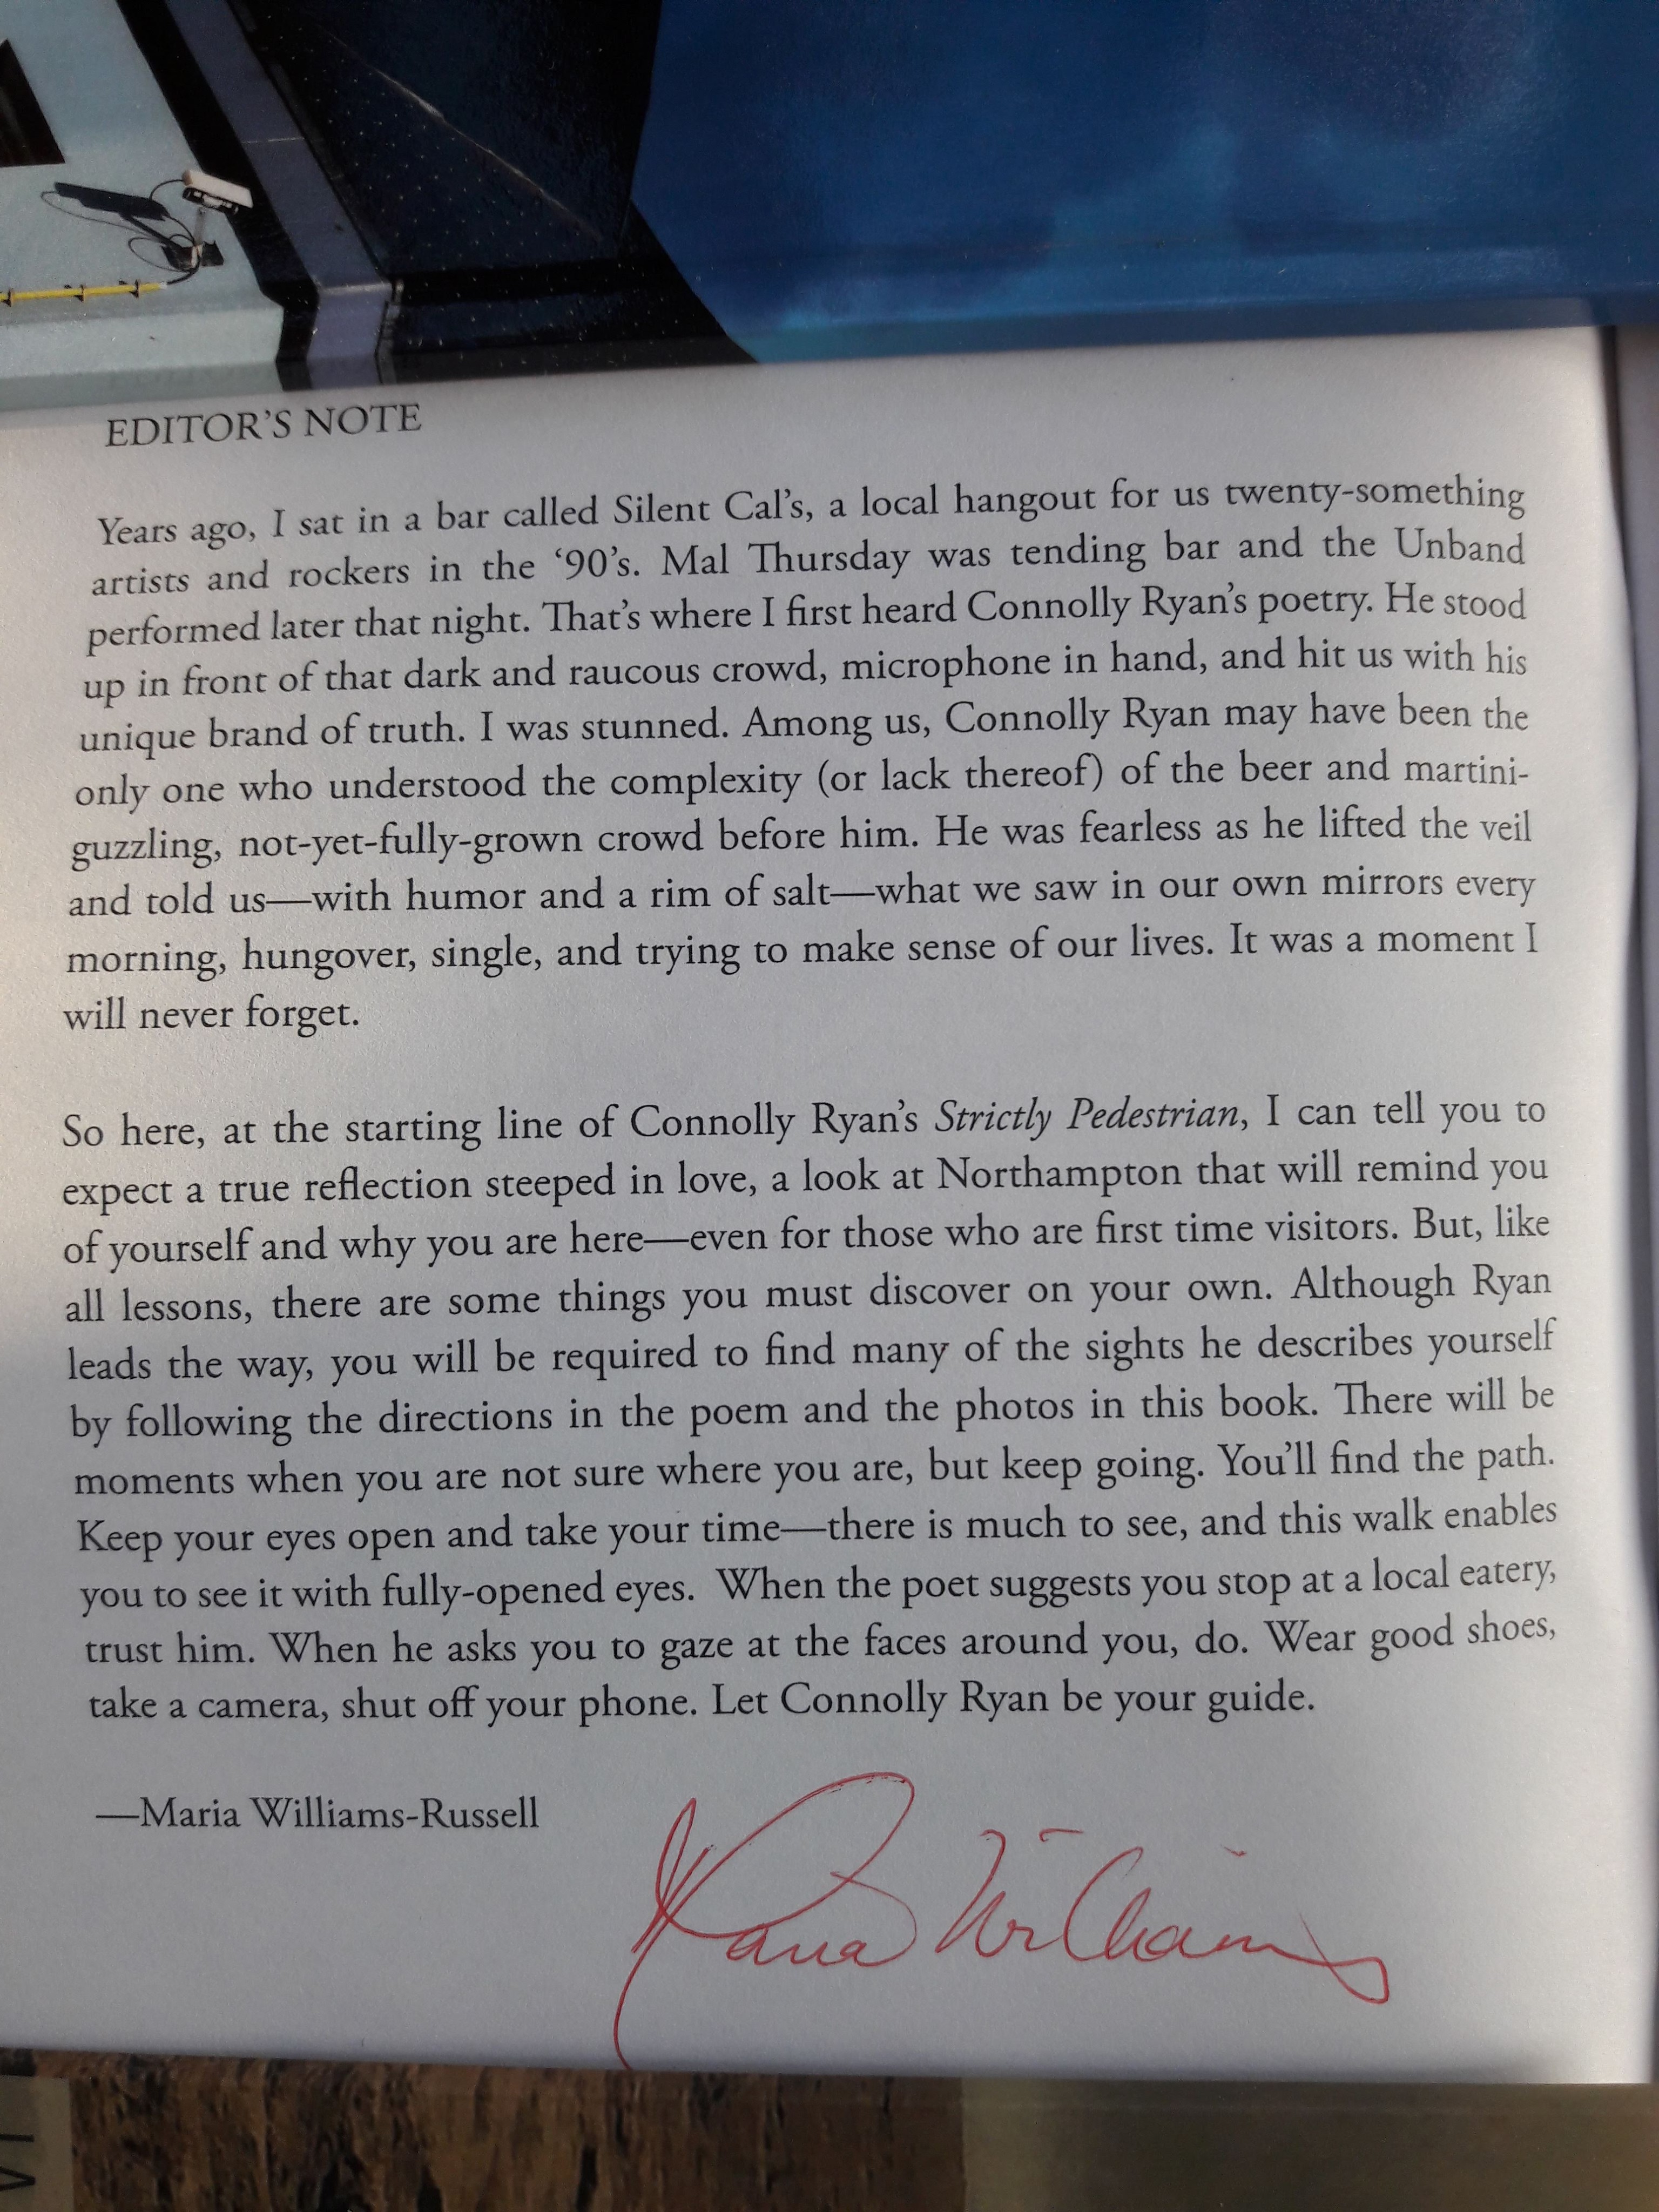 EDITOR'S NOTE
Years ago, I sat in a bar called Silent Cal's, a local hangout for us twenty-something
artists and rockers in the ‘90’s. Mal Thursday was tending bar and the Unband
performed later that night. That’s where I first heard Connolly Ryan’s poetry. He stood
up in front of that dark and raucous crowd, microphone in hand, and hit us with his
unique brand of truth. I was stunned. Among us, Connolly Ryan may have been the
only one who understood the complexity (or lack thereof) of the beer and martini-
guzzling, not-yet-fully-grown crowd before him. He was fearless as he lifted the veil
and told us—with humor and a rim of salt—what we saw in our own mirrors every
morning, hungover, single, and trying to make sense of our lives. It was a moment I
will never forget.
So here, at the starting line of Connolly Ryan’s Strictly Pedestrian, I can tell you to
expect a true reflection steeped in love, a look at Northampton that will remind you
of yourself and why you are here—even for those who are first time visitors. But, like
all lessons, there are some things you must discover on your own. Although Ryan
leads the way, you will be required to find many of the sights he describes yourself
by following the directions in the poem and the photos in this book. There will be
moments when you are not sure where you are, but keep going. You’ll find the path.
Keep your eyes open and take your time—there is much to see, and this walk enables
you to see it with fully-opened eyes. When the poet suggests you stop at a local eatery,
trust him. When he asks you to gaze at the faces around you, do. Wear good shoes,
take a camera, shut off your phone. Let Connolly Ryan be your guide.
—Maria Williams-Russell
Maria Williams